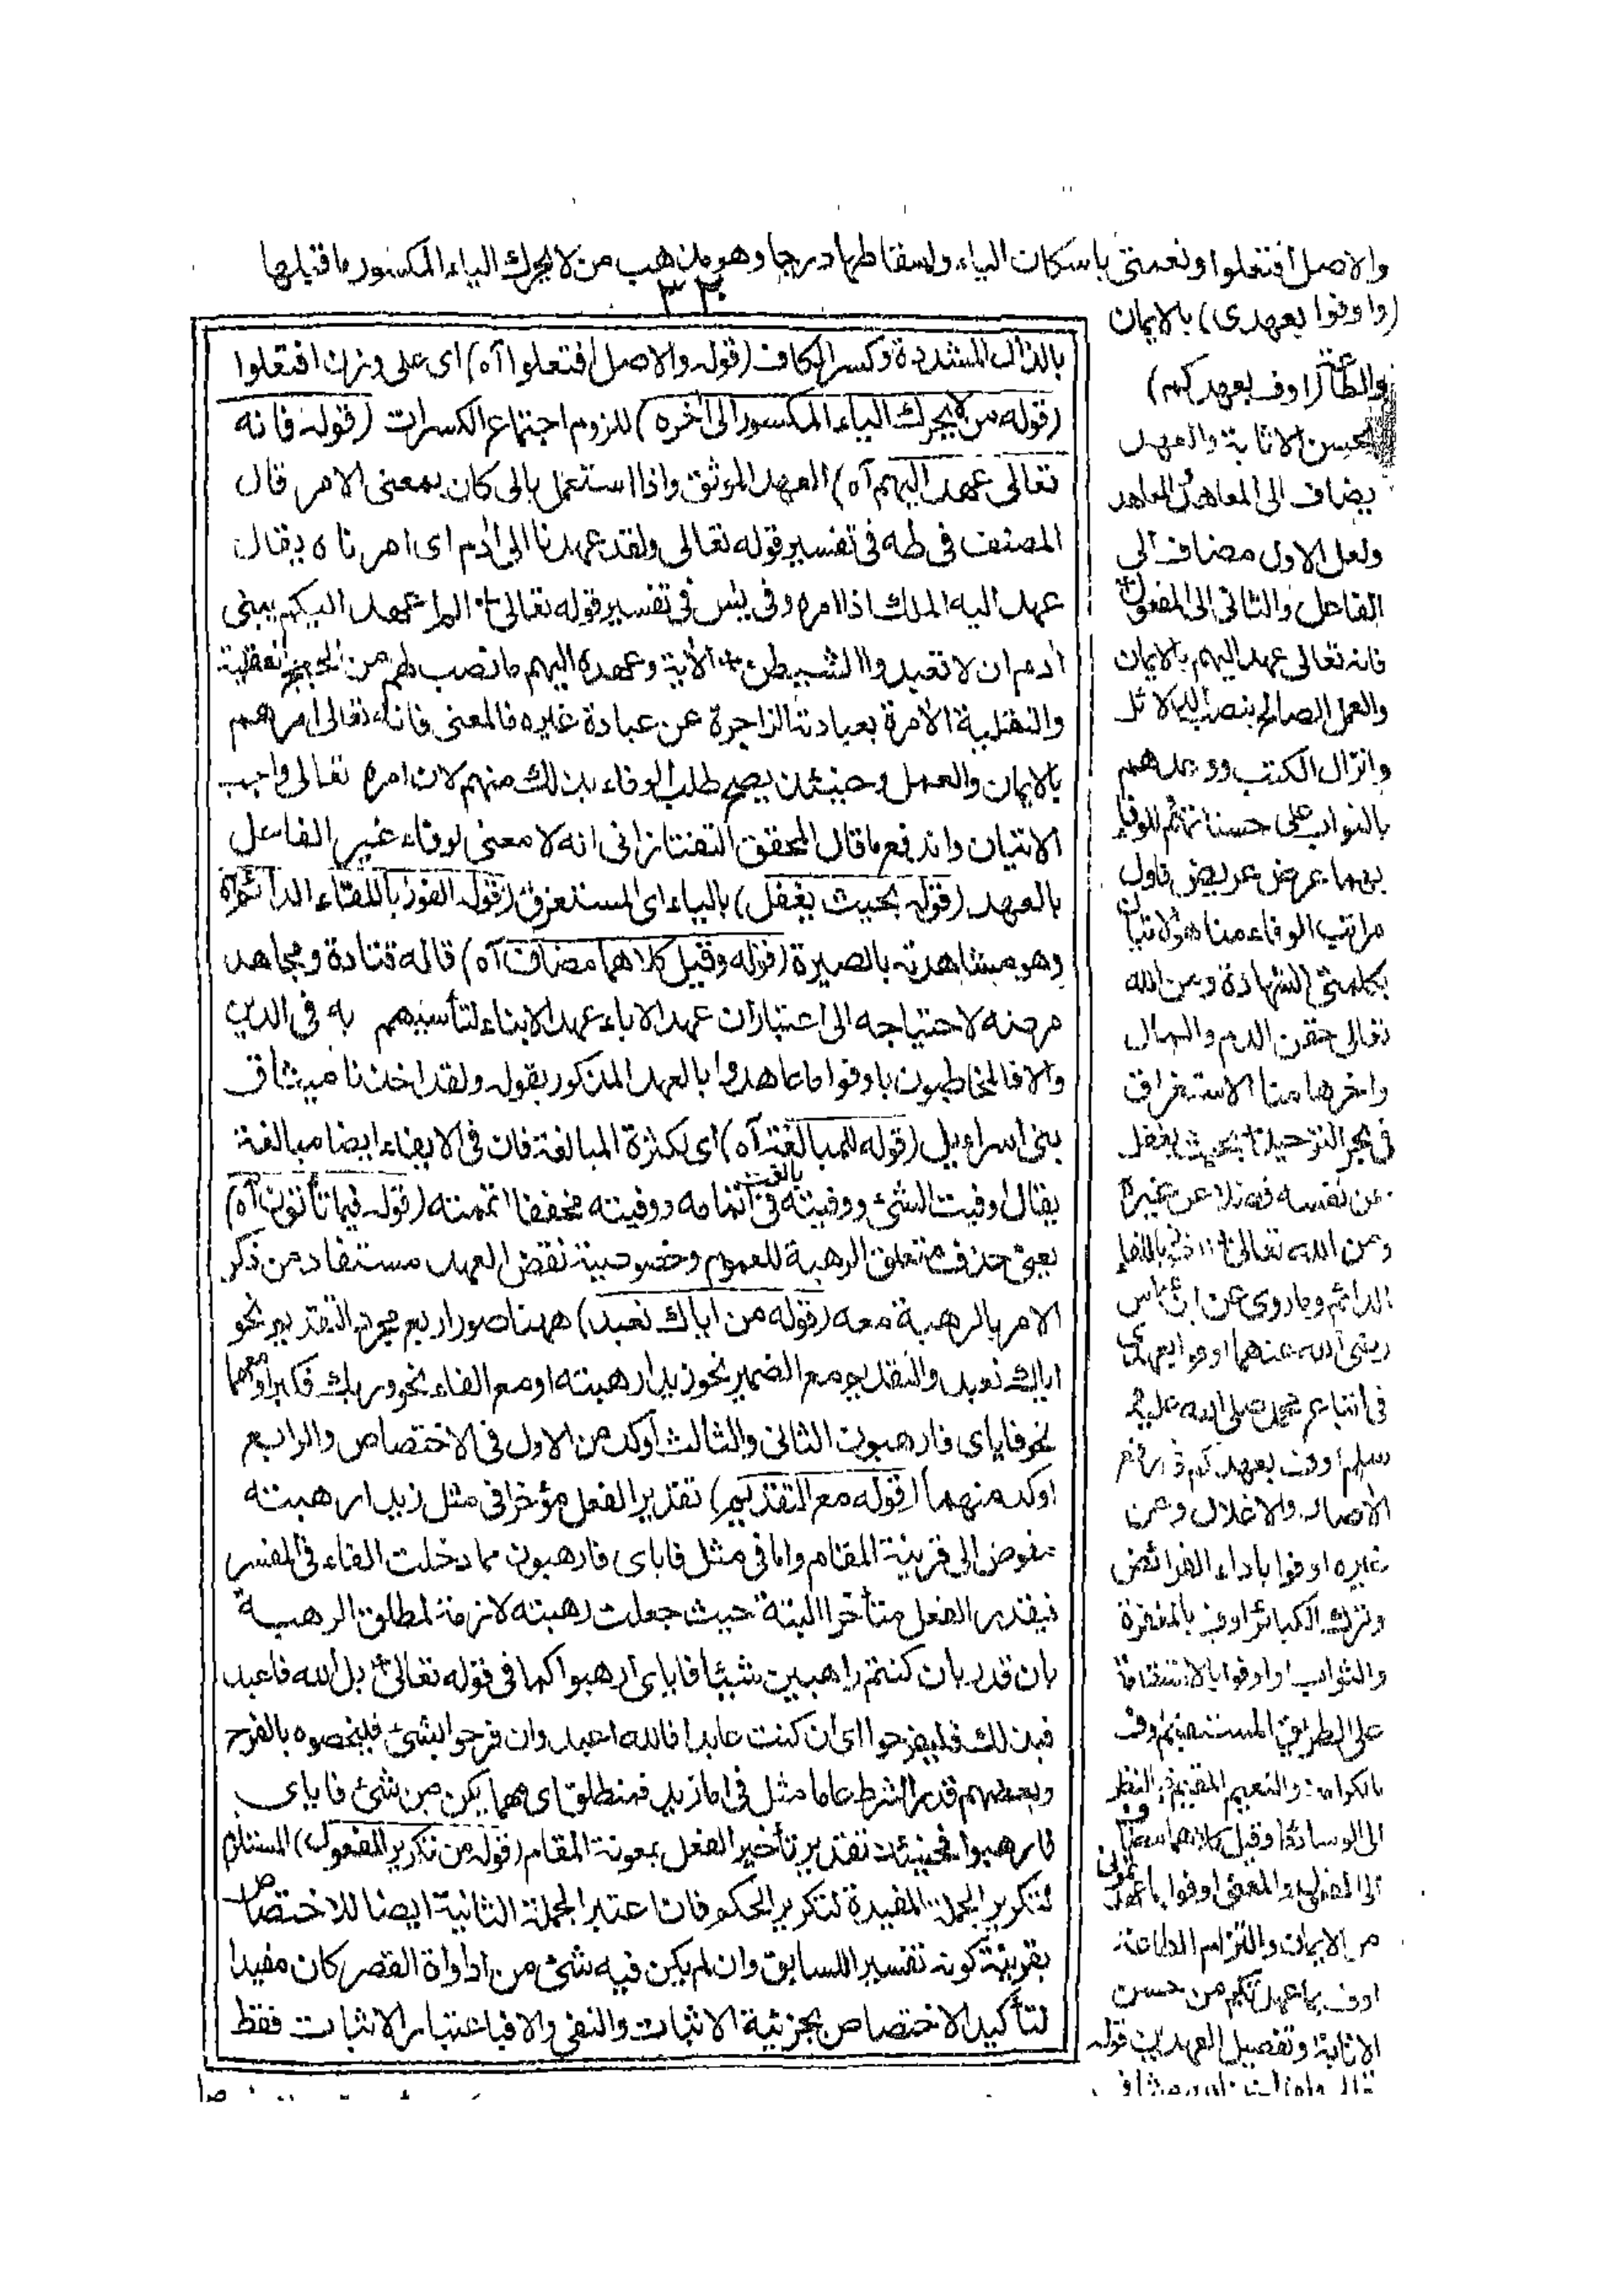 والاصل افتعلوا ونعمتى باسكان الياء واسقاطها درجا وهو مذهب من لا يحرك الياء المكسور ما قبلها
(واوفوا بعهدى) بالايمان
والطاعة (اوف بعهدكم)
بحسن الاثابة والعهد
يضاف الى المعاهِد والمعاهَد
ولعل الاول مضاف الى
الفاعل والثانى الى المفعول
فانه تعالى عهد اليهم بالايمان
والعمل الصالح بنصب الدلائل
وانزال الكتب ووعدهم
بالثواب على حسناتهم وللوفاء
بهما عرض عريض فاول
مراتب الوفاء منا هو الاتيان
بكلمتى الشهادة ومن الله
تعالى حقن الدم والمال
واخرها منا الاستغراق
فى بحر التوحيد بحيث يغفل
عن نفسه فضلا عن غيره
ومن الله تعالى الفوز باللقاء
الدائم وما روى عن ابن عباس
رضى الله عنهما اوفوا بعهدى
فى اتباع محمد صلى الله عليه
وسلم اوف بعهدكم فى رفع
الآصار والاغلال وعن
غيره اوفوا باداء الفرائض
وترك الكبائر اوف بالمغفرة
والثواب او اوفوا بالاستقامة
على الطريق المستقيم اوف
بالكرامة والنعيم المقيم فبالنظر
الى الوسائط وقيل كلاهما مضاف
الى المفعول والمعنى اوفوا بما عاهدتمونى
من الايمان والتزام الطاعة
اوف بما عهدتكم من حسن
الاثابة وتفصيل العهدين قوله
٣٣٠
بالذال المشددة وكسر الكاف (قوله والاصل افتعلوا آه) اى على وزن افتعلوا
(قوله من لا يحرك الياء المكسور الى آخره) للزوم اجتماع الكسرات (قوله فانه
تعالى عهد اليهم آه) العهد الموثق واذا استعمل بالى كان بمعنى الامر قال
المصنف فى طه فى تفسير قوله تعالى ولقد عهدنا الى آدم اى امرناه يقال
عهد اليه الملك اذا امره وفى يٰس فى تفسير قوله تعالى الم اعهد اليكم يبنى
آدم ان لا تعبدوا الشيطن الآية وعهده اليهم ما نصب لهم من الحجج العقلية
والنقلية الآمرة بعبادته الزاجرة عن عبادة غيره فالمعنى فانه تعالى امرهم
بالايمان والعمل وحينئذ يصح طلب الوفاء بذلك منهم لان امره تعالى واجب
الاتيان واندفع ما قال المحقق التفتازانى انه لا معنى لوفاء غير الفاعل
بالعهد (قوله بحيث يغفل) بالياء اى المستغرق (قوله الفوز باللقاء الدائم آه)
وهو مشاهدته بالصيرة (قوله وقيل كلاهما مضاف آه) قاله قتادة ومجاهد
مرضه لاحتياجه الى اعتبار ان عهد الاباء عهد الابناء لتأسيهم به فى الدين
والا فالمخاطبون باوفوا ما عاهدوا بالعهد المذكور بقوله ولقد اخذنا ميثاق
بنى اسرايل (قوله للمبالغة آه) اى لكثرة المبالغة فان فى الايفاء ايضا مبالغة
يقال اوفيت الشئ ووفيته بالغت فى اتمامه ووفيته مخففا اتممته (قوله فيما تأتون آه)
يعنى حذف متعلق الرهبة للعموم وخصوصية نقض العهد مستفاد من ذكر
الامر بالرهبة معه (قوله من اياك نعبد) ههنا صور اربع مجرد التقديم نحو
اياك نعبد والتقديم مع الضمير نحو زيدا رهبته او مع الفاء نحو وربك فكبر او معهما
نحو فاياى فارهبون الثانى والثالث اوكد من الاول فى الاختصاص والرابع
اوكد منهما (قوله مع التقديم) تقدير الفعل مؤخرا فى مثل زيدا رهبته
مفوض الى قرينة المقام واما فى مثل فاياى فارهبون مما دخلت الفاء فى المفسر
فيقدر الفعل متأخرا البتة حيث جعلت رهبته لازمة لمطلق الرهبة
بان قدر بان كنتم راهبين شيئا فاياى ارهبوا كما فى قوله تعالى بل الله فاعبد
فبذلك فليفرحوا اى ان كنت عابدا فالله اعبد وان فرحوا بشئ فليخصوه بالفرح
وبعضهم قدر الشرط عاما مثل فى اما زيد فمنطلق اى مهما يكن من شئ فاياى
فارهبوا فحينئذ تقدير تأخير الفعل بمعونة المقام (قوله من تكرير المفعول) المستلزم
لتكرير الجملة المفيدة لتكرير الحكم فان اعتبر الجملة الثانية ايضا للاختصاص
بقرينة كونه تفسيرا للسابق وان لم يكن فيه شئ من اداواة القصر كان مفيدا
لتأكيد الاختصاص بجزئية الاثبات والنفى والا فباعتبار الاثبات فقط